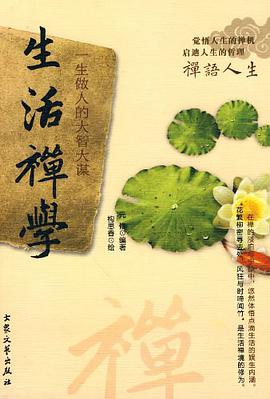 觉悟人生的禅机
启迪人生的哲理
禪語人生
生活禪學
一生做人的大智大谋
编著
绘
在禅的中，悠然体悟点滴生活的内涵。
花繁柳密，风狂，是生活禅境的修为。
禅
大众文艺出版社